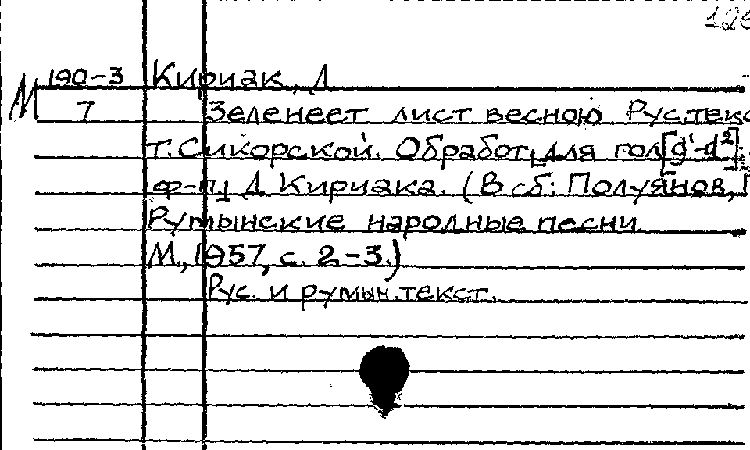 М 190-3 Кириак, Д.
7 Зеленеет лист весною Рус.текс
т. Сикорской. Обработ. для гол[g¹-d²]
ф-п Д. Кириака. (В сб: Полуянов, П
Румынские народные песни
М., 1957, с. 2-3.)
Рус. и румын.текст.